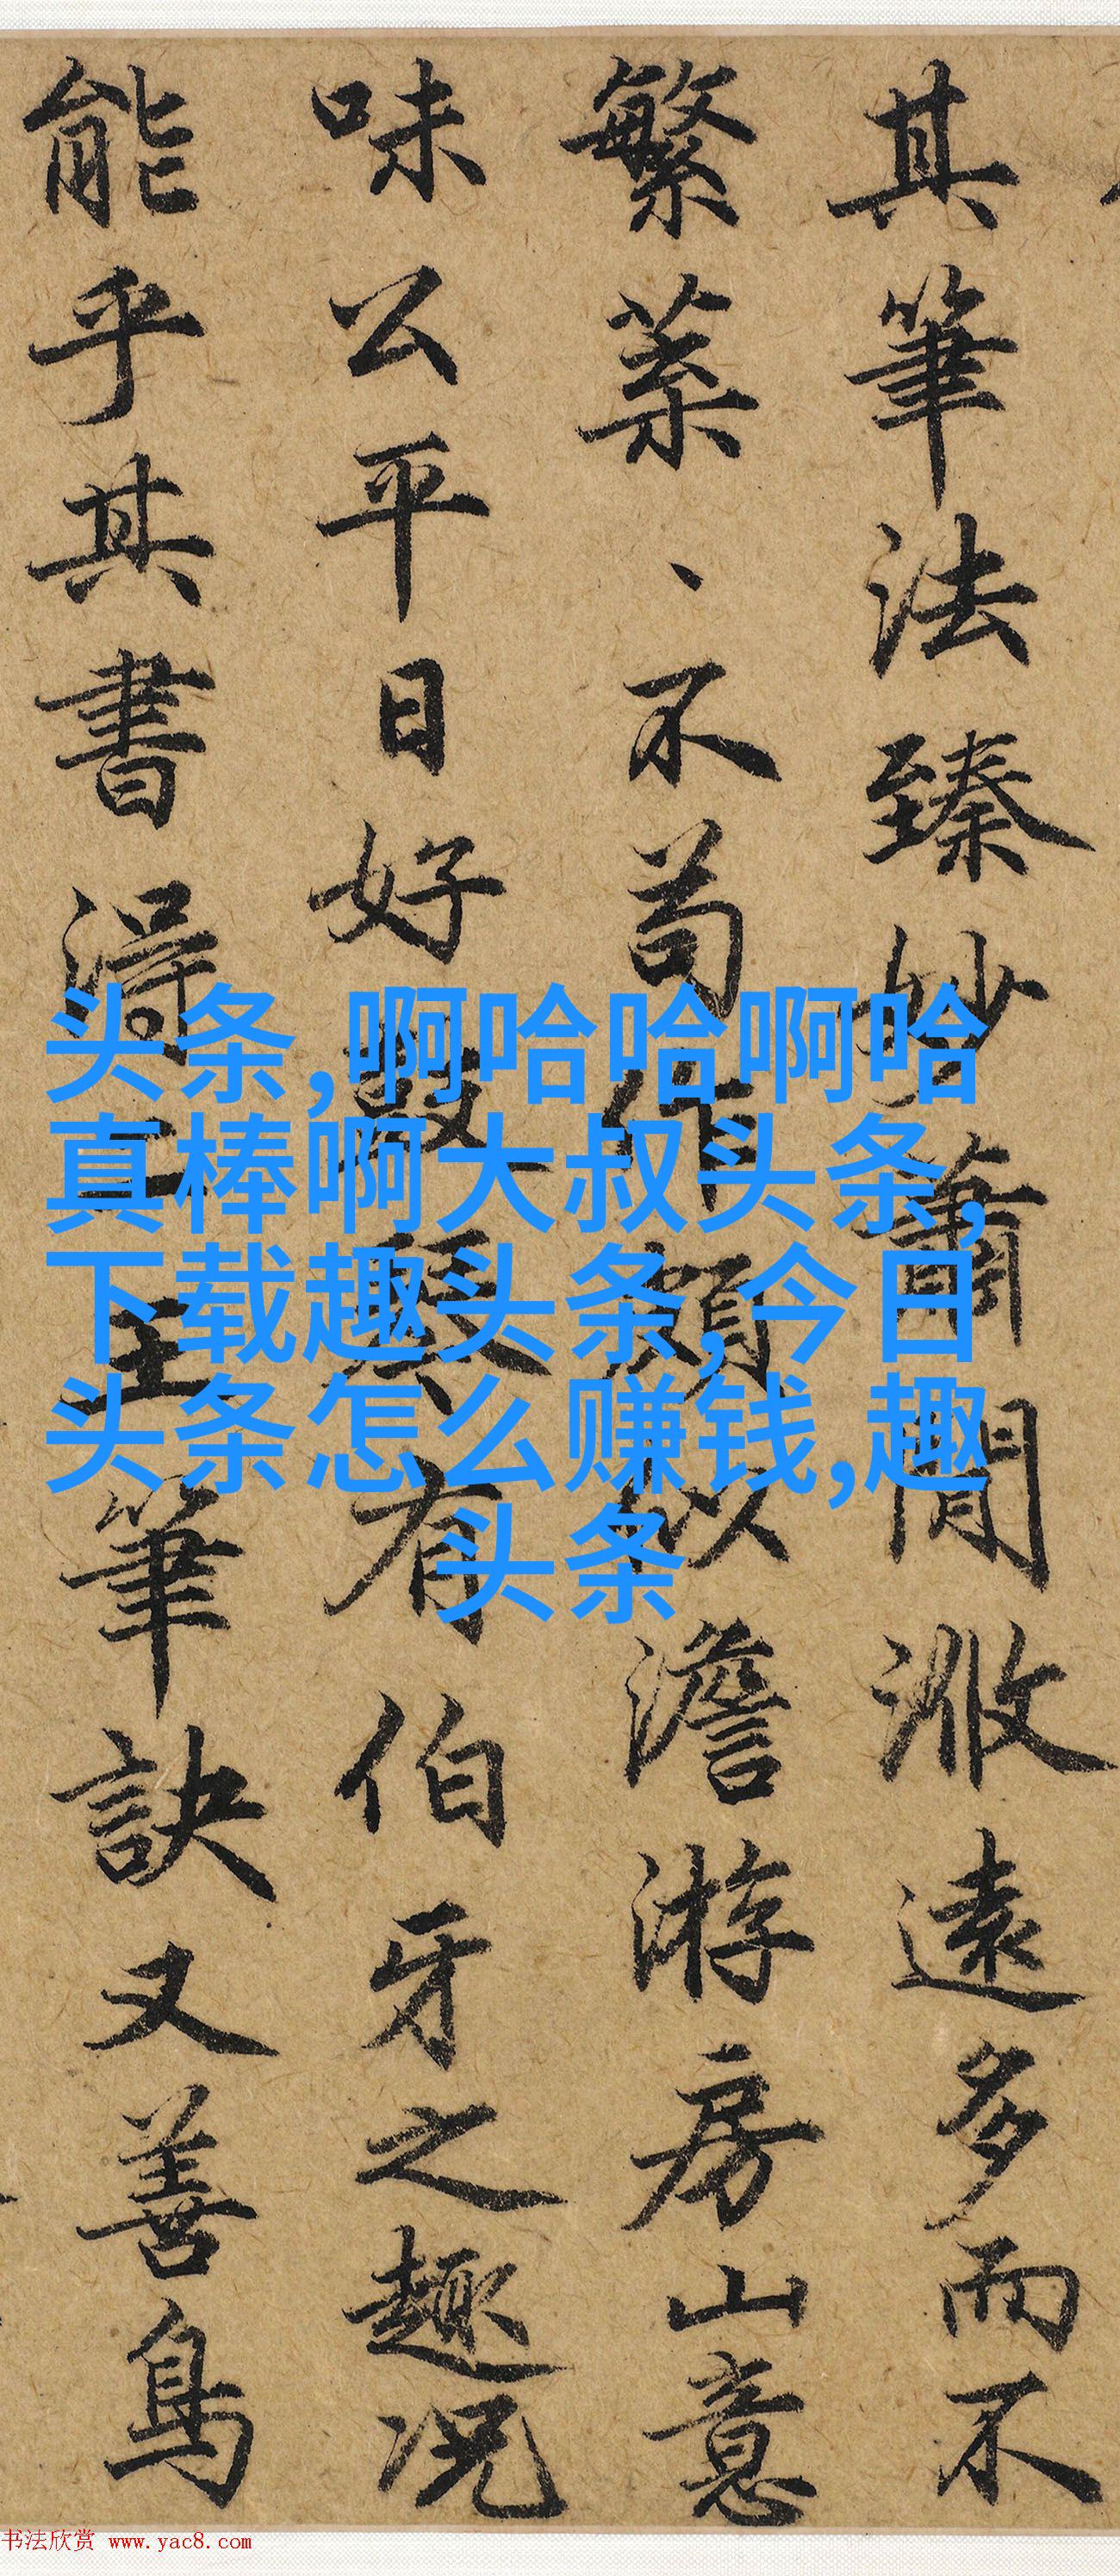 其筆法臻妙蕭閒澹遠多而不
繁菜、不苟作頗以澹游房山意
味公平日好鼓琴有伯牙之趣况
能乎其書得二王筆訣又善鳥
头条,啊哈哈啊哈
真棒啊大叔头条,
下载趣头条,今日
头条怎么赚钱,趣
头条
书法欣赏 www.yac8.com